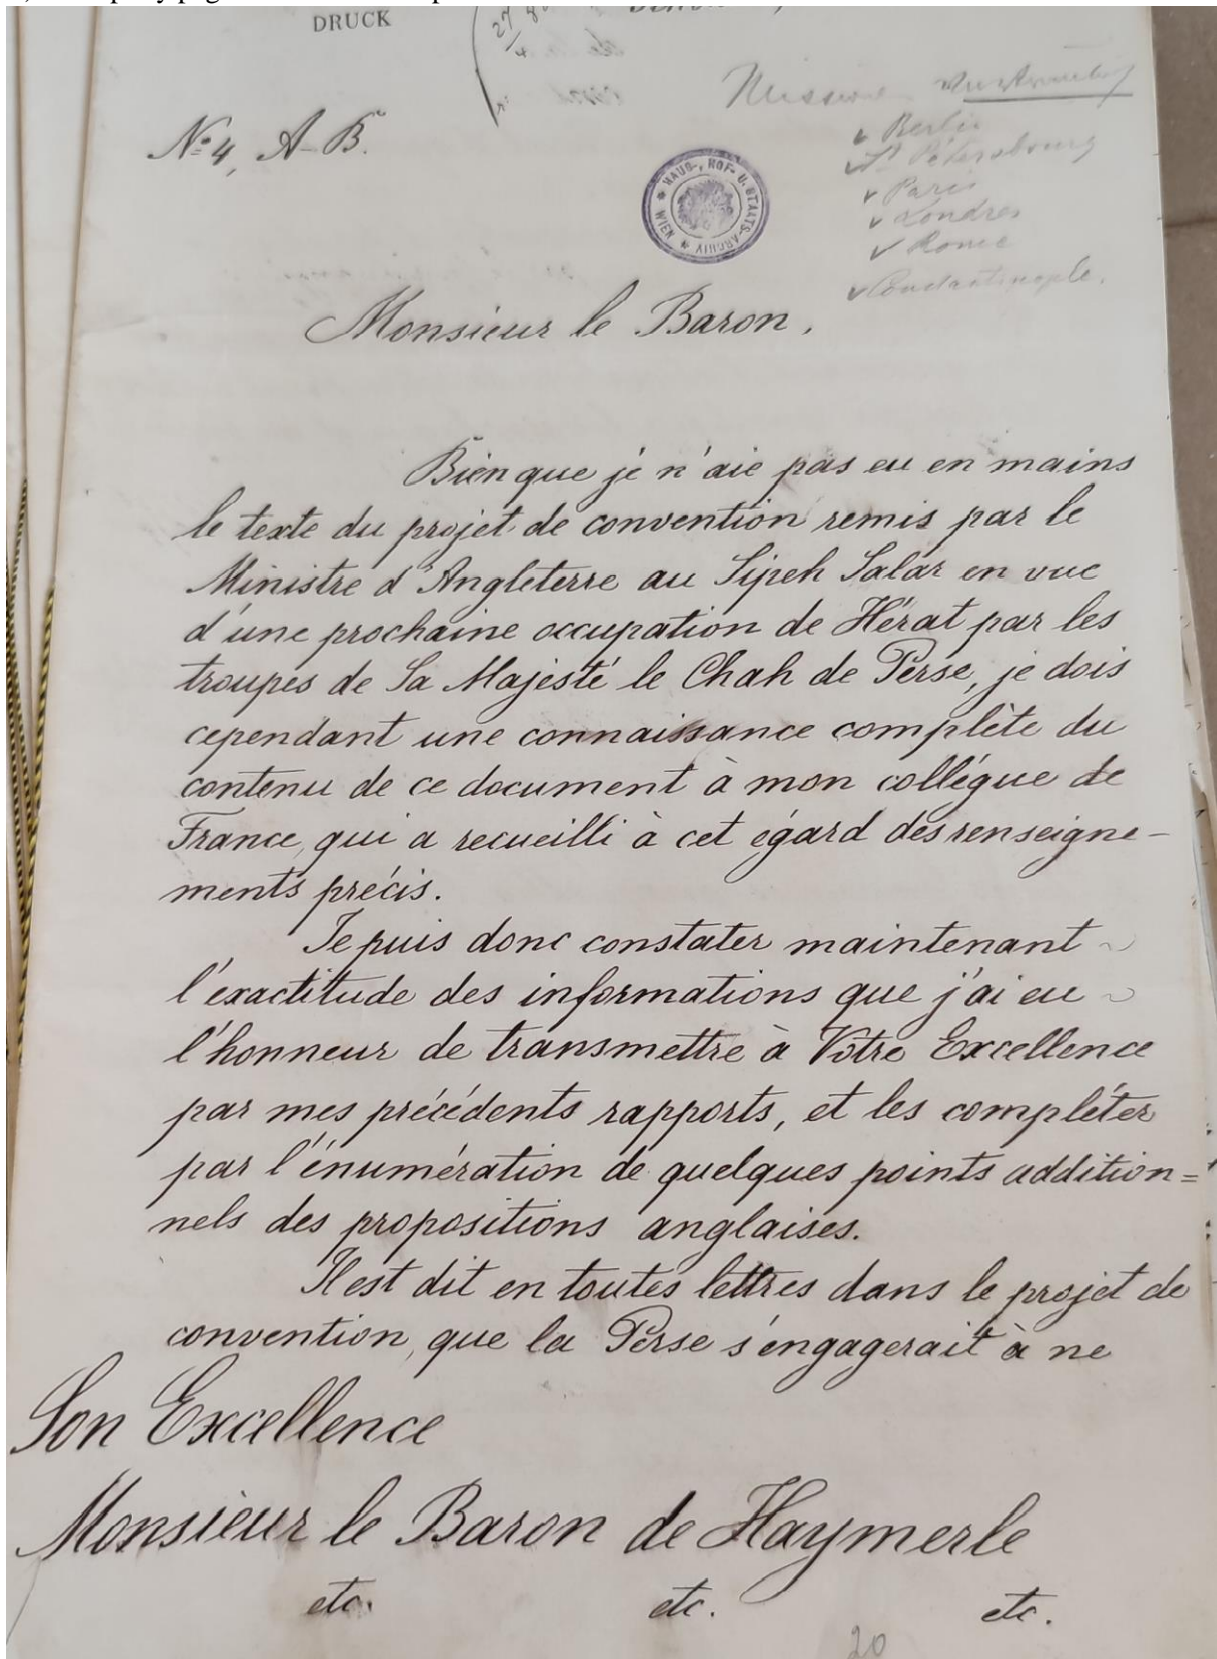 DRUCK
27/4 80
Nº 4, A-B.
HAUS-, HOF- U. STAATS-ARCHIV * WIEN *
Berlin
St Pétersbourg
Paris
Londres
Rome
Constantinople.
Monsieur le Baron,
Bien que je n'aie pas eu en mains
le texte du projet de convention remis par le
Ministre d'Angleterre au Sipeh Salar en vue
d'une prochaine occupation de Hérat par les
troupes de Sa Majesté le Chah de Perse, je dois
cependant une connaissance complète du
contenu de ce document à mon collégue de
France, qui a recueilli à cet égard des renseigne-
ments précis.
Je puis donc constater maintenant
l'exactitude des informations que j'ai eu
l'honneur de transmettre à Votre Excellence
par mes précédents rapports, et les compléter
par l'énumération de quelques points addition=
nels des propositions anglaises.
Il est dit en toutes lettres dans le projet de
convention, que la Perse s'engagerait à ne
Son Excellence
Monsieur le Baron de Haymerle
etc. etc. etc.
20